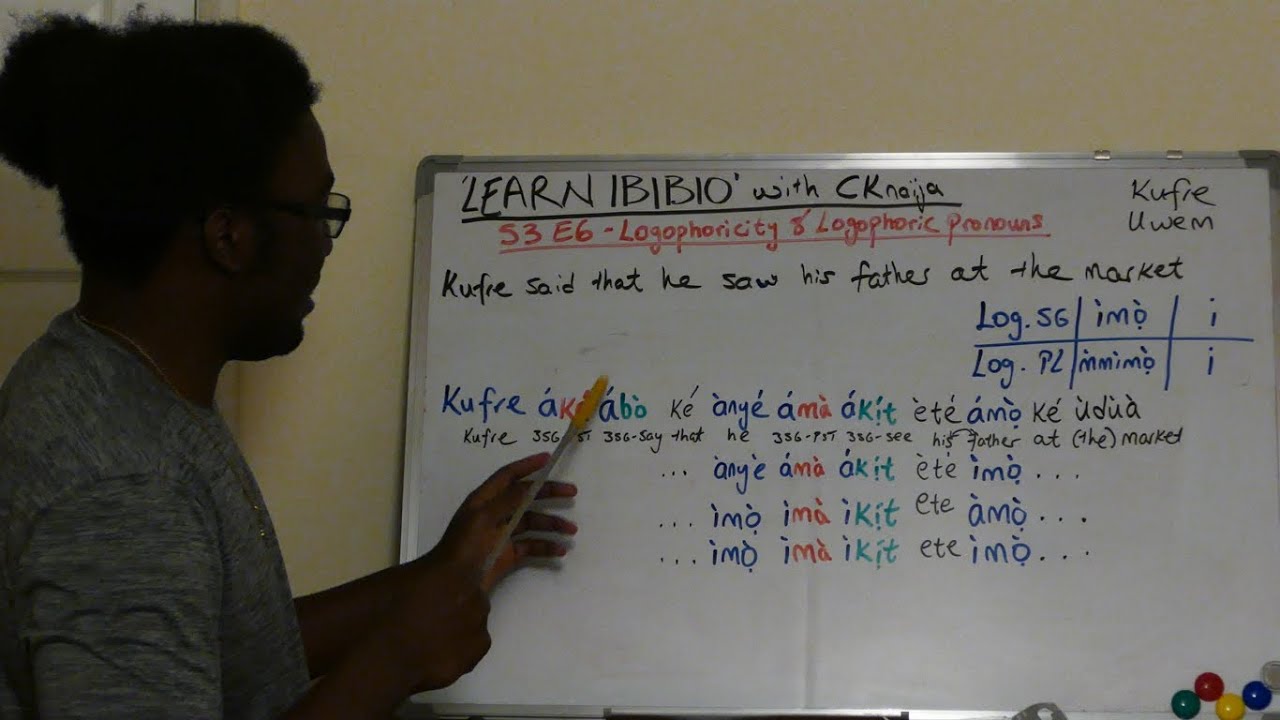 'LEARN IBIBIO' with CKnaija
Kufre
Uwem
S3 E6 - Logophoricity & Logophoric pronouns
Kufre said that he saw his father at the market
Log. SG ìmọ̀ i
Log. PL ìmmimọ̀ i
Kufre áké ábò ké ànyé ámà ákị́t èté ámọ̀ ké ùdùà
Kufre 3SG-PST 3SG-say that he 3SG-PST 3SG-see his father at (the) market
... ànyè ámà ákị́t èté ìmọ̀ ...
... ìmọ̀ ìmà ìkị́t ete àmọ̀ ...
... ìmọ̀ ìmà ìkị́t ete ìmọ̀ ...